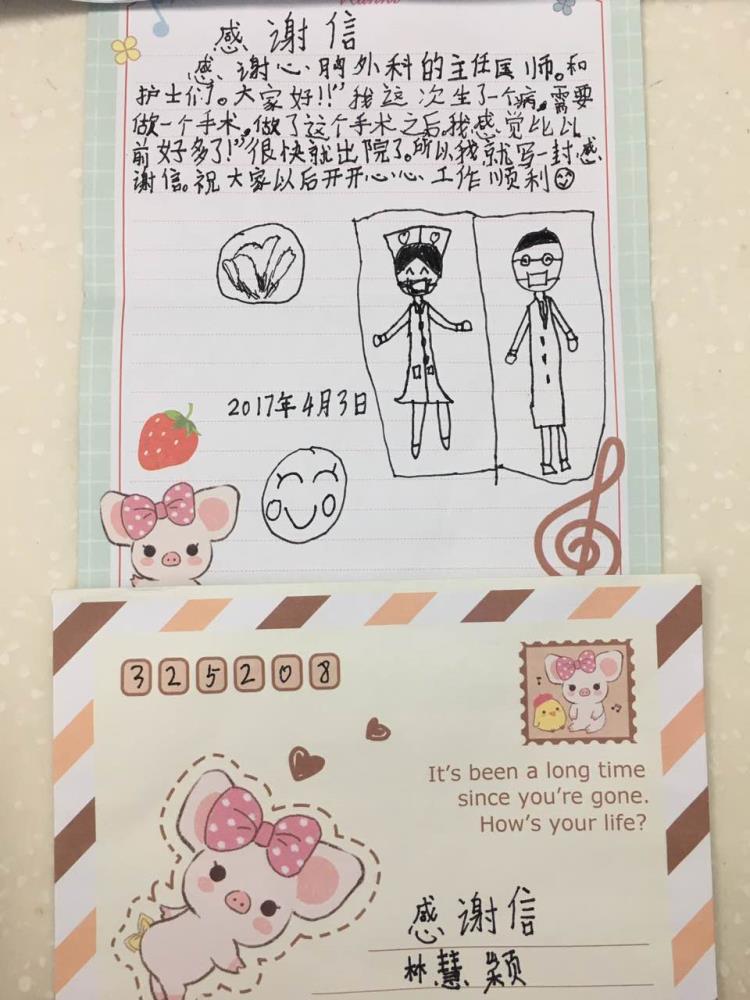 感谢信
感谢心胸外科的主任医师。和
护士们。大家好!!”我这次生了一个病。需要
做一个手术。做了这个手术之后。我感觉比以
前好多了!”很快就出院了。所以我就写一封感
谢信。祝大家以后开开心心工作顺利
2017年4月3日
325208
It's been a long time
since you're gone.
How's your life?
感谢信
林慧颖